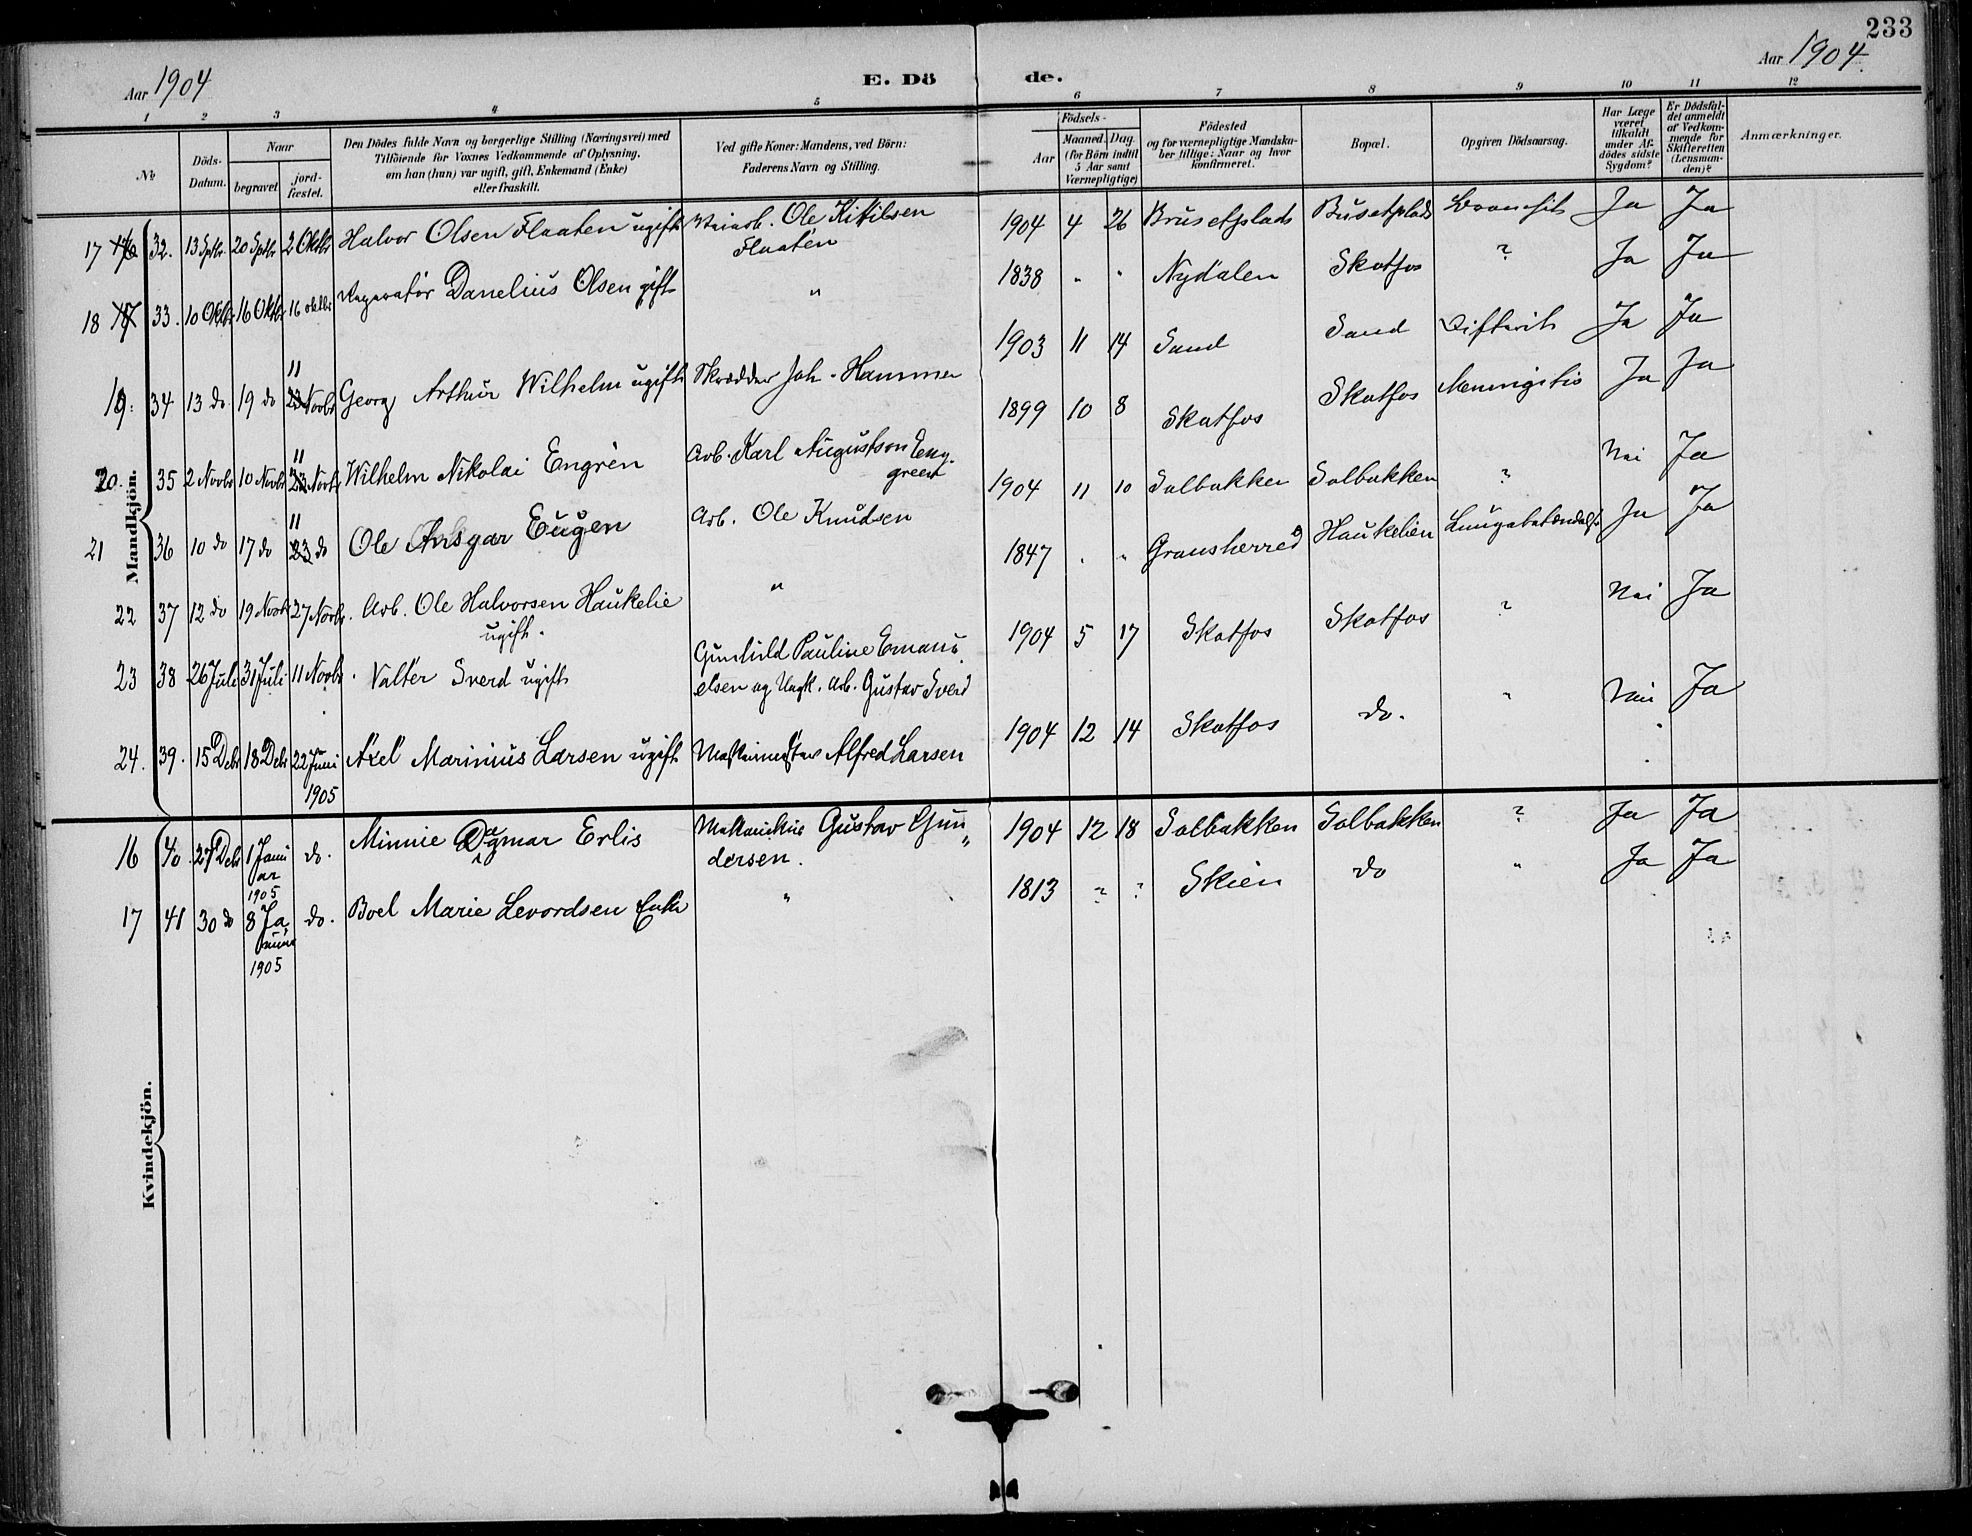 233
Aar 1904
E. Dö de.
Aar 1904.
1 2 3 4 5 6 7 8 9 10 11 12
No
Döds-Datum.
Naar
begravet
jord-fæstet.
Den Dödes fulde Navn og borgerlige Stilling (Næringsvei) med
Tilföiende for Voxnes Vedkommende af Oplysning,
om han (hun) var ugift, gift, Enkemand (Enke)
eller fraskilt.
Ved gifte Koner: Mandens, ved Börn:
Faderens Navn og Stilling.
Födsels-
Aar
Maaned. Dag
(for Börn indtil
5 Aar samt
Værnepligtige)
Födested
og for værnepligtige Mandska-
ber tillige: Naar og hvor
konfirmeret.
Bopæl.
Opgiven Dödsaarsag.
Har Læge
været
tilkaldt
under Af-
dödes sidste
Sygdom?
Er Dödsfal-
det anmeldt
af Vedkom-
mende for
Skifteretten
(Lensman-
den)?
Anmærkninger.
Mandkjön.
17 16 32. 13 Sptbr. 20 Sptbr 2 Oktbr Halvor Olsen Flaaten ugift Veiarb. Ole Kittilsen 1904 4 26 Brusetplads Busetplads Bronchit Ja Ja
Flaaten
18 17 33. 10 Oktbr 16 Oktbr 16 oktbr Reparatör Danelius Olsen gift " 1838 " " Nydalen Skotfos ? Ja Ja
19. 34 13 do 19 do 11 23 Novbr Georg Arthur Wilhelm ugift Skrædder Joh. Hammer 1903 11 14 Sand Sand Difterit Ja Ja
20. 35 2 Novbr 10 Novbr 11 23 Novbr Wilhelm Nikolai Engrén Arb. Karl Augustson Eng- 1899 10 8 Skotfos Skotfos Meningitis Ja Ja
green
21 36 10 do 17 do 11 23 do Ole Ansgar Eugen Arb. Ole Knudsen 1904 11 10 Solbakken Solbakken ? Nei Ja
22 37 12 do 19 Novbr 27 Novbr. Arb. Ole Halvorsen Haukelie " 1847 . " Gransherred Haukelien Lungebetændelse Ja Ja
ugift.
23 38 26 Juli 31 Juli 11 Novbr. Valter Sverd ugift Gunhild Pauline Emanu- 1904 5 17 Skotfos Skotfos ? Nei Ja
elsen og Ungk. Arb. Gustav Sverd
24. 39. 15 Debr 18 Debr 22 Juni Axel Marinius Larsen ugift Maskinmester Alfred Larsen 1904 12 14 Skotfos do. " Nei Ja
1905
Kvindekjön.
16 40. 27 Debr 1 Janu do. Minnie Dagmar Erlis Mekanikus Gustav Gun" 1904 12 18 Solbakken Solbakken ? Ja Ja
ar dersen.
1905
17 41 30 do 8 Ja do. Boel Marie Levordsen Enke " 1813 ? ? Skien do " Ja Ja
nuar
1905